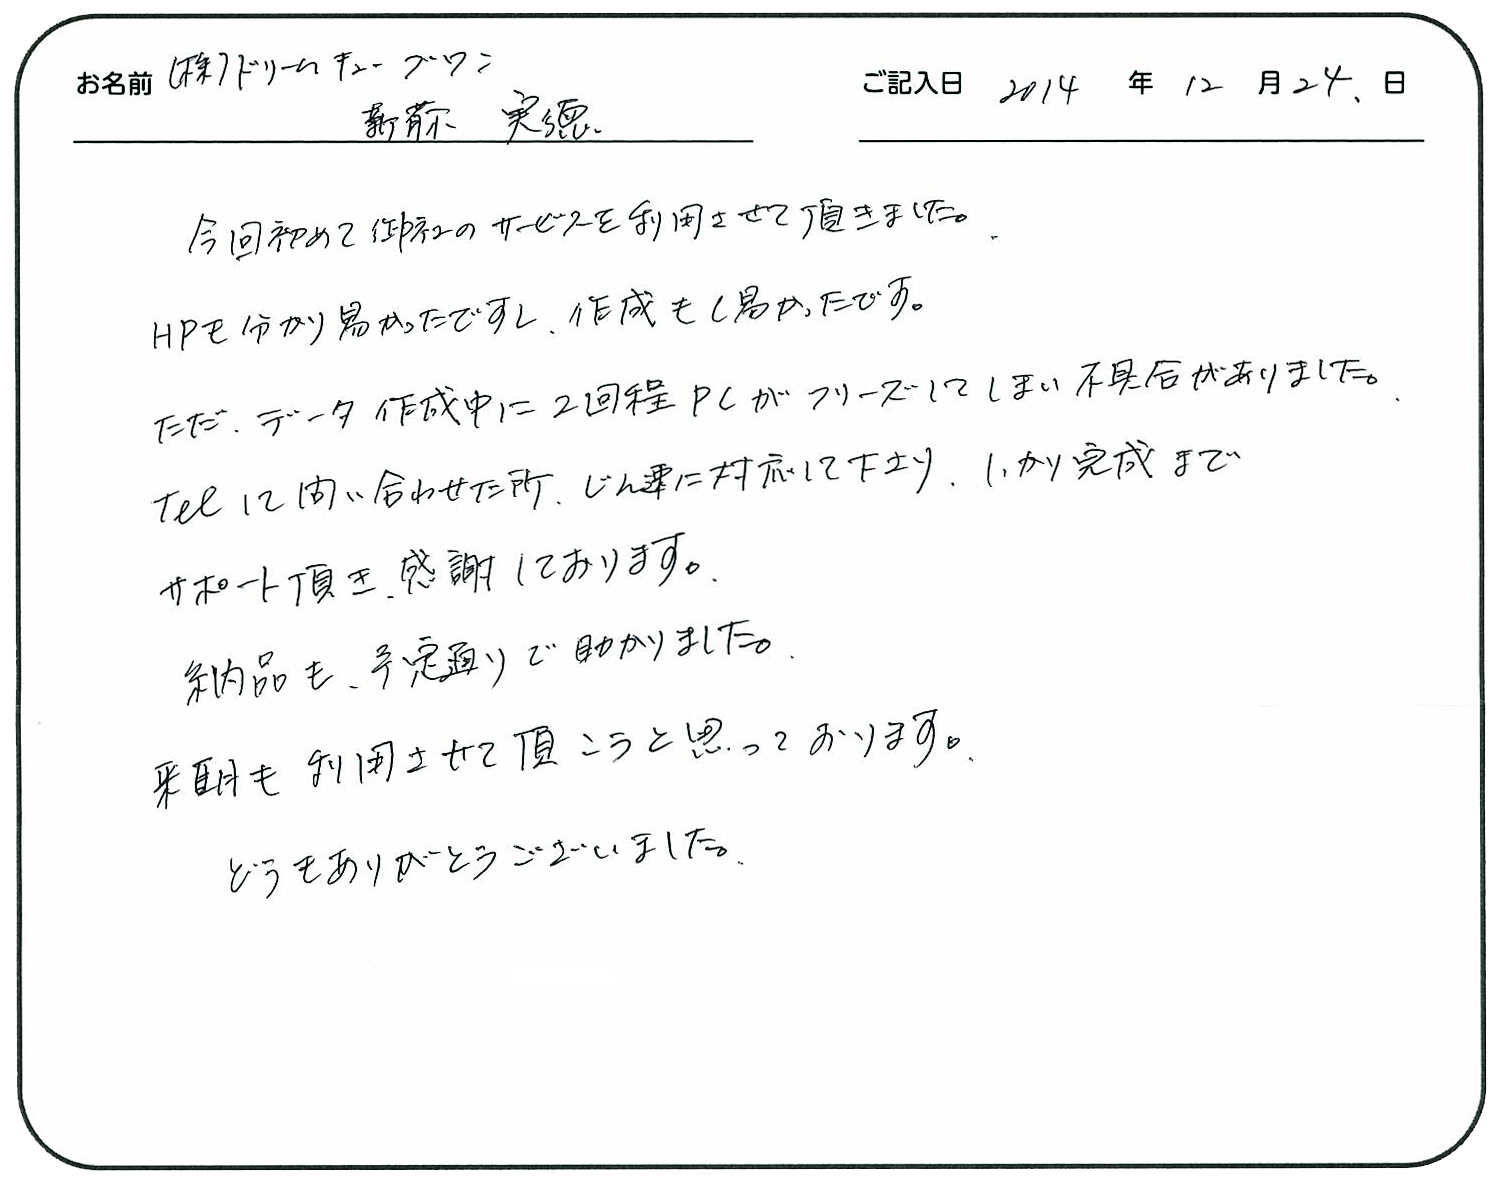 お名前 (株)ドリームキューブワン
新藤 実徳
ご記入日 2014 年 12 月 24 日
今回初めて御社のサービスを利用させて頂きました。
HPも分かり易かったですし、作成もし易かったです。
ただ、データ作成中に2回程PCがフリーズしてしまい不具合がありました。
Telにて問い合わせた所、じん速に対応して下さり、しっかり完成まで
サポート頂き、感謝しております。
納品も、予定通りで助かりました。
来期も利用させて頂こうと思っております。
どうもありがとうございました。